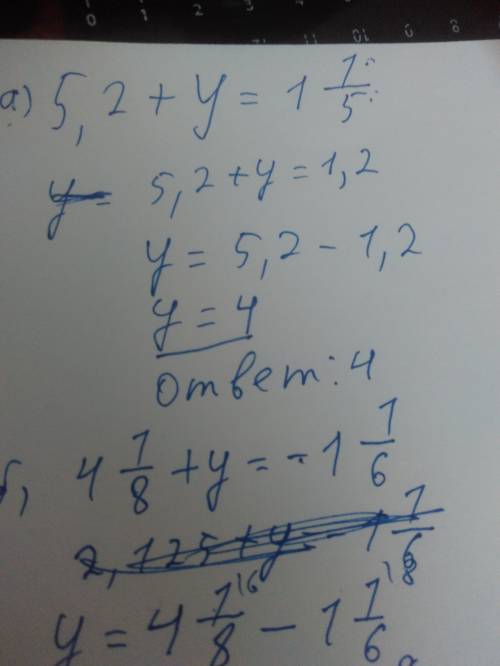 а) 5,2 + y = 1 1/5
y = 5,2 + y = 1,2
y = 5,2 - 1,2
y = 4
ответ: 4
б) 4 1/8 + y = -1 1/6
2,125 + y = -1 1/6
y = 4 1/8 - 1 1/6